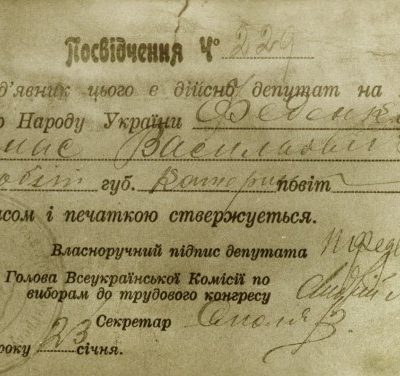 Посвідчення Ч° 229
д'явник цього є дійсно депутат на
о Народу України Феденко
нас Васильович
губ. Катерин повіт
сом і печаткою стверджується.
Власноручний підпис депутата П Фед
Голова Всеукраїнської Комісії по
виборам до трудового конгресу
Секретар
року 23 січня.